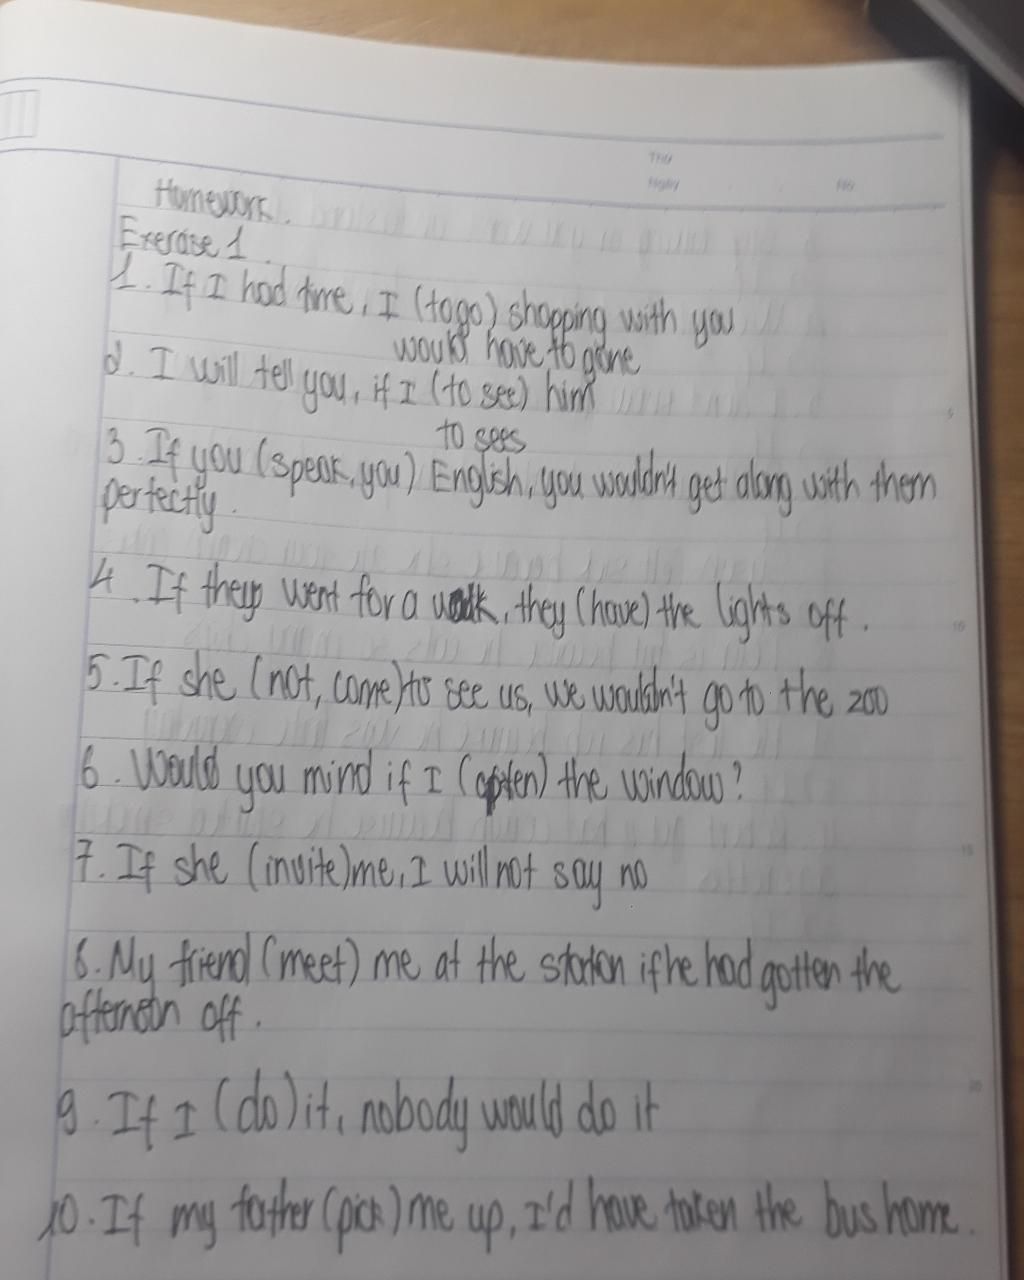 Thứ
Ngày No
Homework.
Exercise 1.
1. If I had time, I (to go) shopping with you
would have to gone
2. I will tell you, if I (to see) him
to sees
3. If you (speak, you) English, you wouldn't get along with them
perfectly.
4. If they went for a walk, they (have) the lights off.
5. If she (not, come) to see us, we wouldn't go to the zoo
6. Would you mind if I () the window?
7. If she (invite) me, I will not say no
8. My friend (meet) me at the station if he had gotten the
afternoon off.
9. If I (do) it, nobody would do it
10. If my father (pick) me up, I'd have taken the bus home.